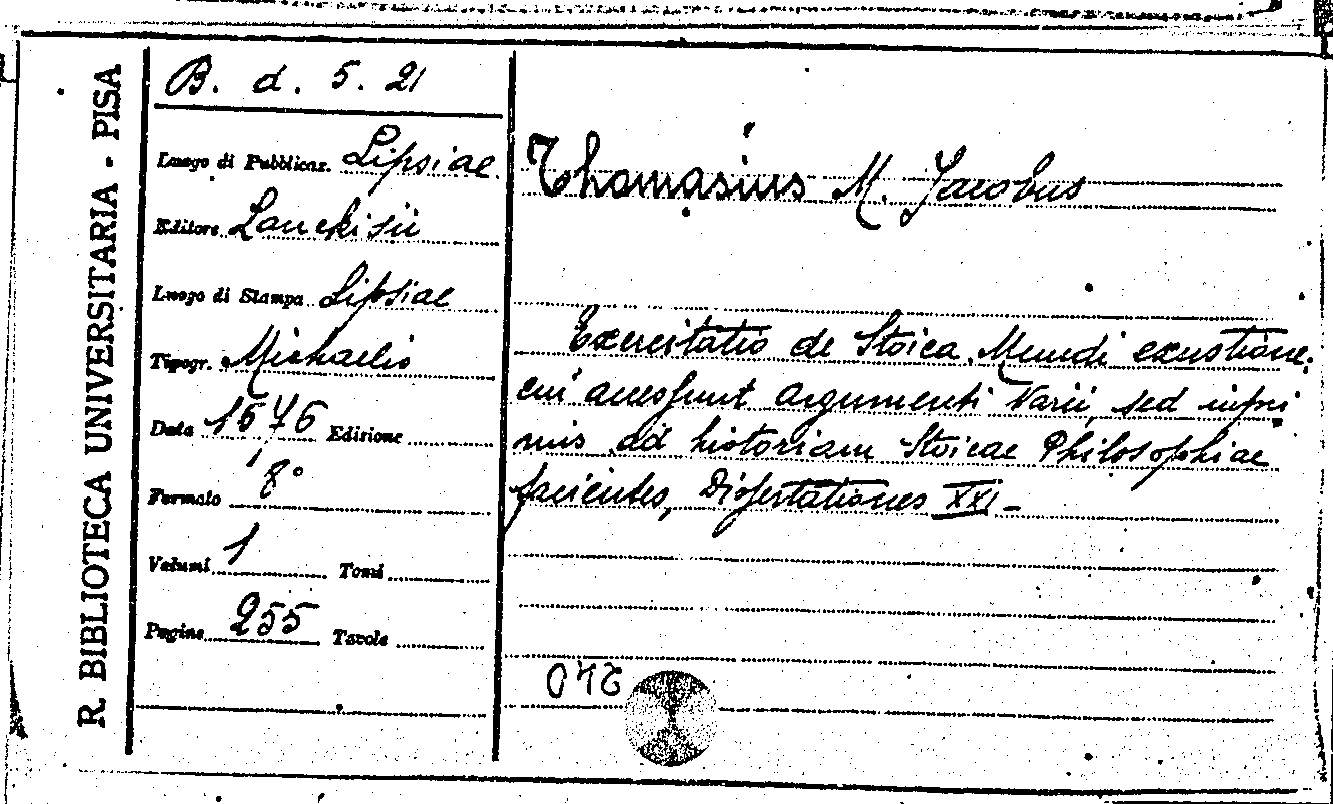 R. BIBLIOTECA UNIVERSITARIA - PISA
B. d. 5. 21
Luogo di Pubblicaz. Lipsiae
Editore Lanckisii
Luogo di Stampa Lipsiae
Tipogr. Michaelis
Data 1676 Edizione
Formato 8°
Volumi 1 Tomi
Pagine 255 Tavole
Thomasius M. Jacobus
Exercitatio de Stoica Mundi exustione:
cui accessunt argumenti Varii, sed inpri
mis ad historiam Stoicae Philosophiae
facientes, Dissertationes XXI -